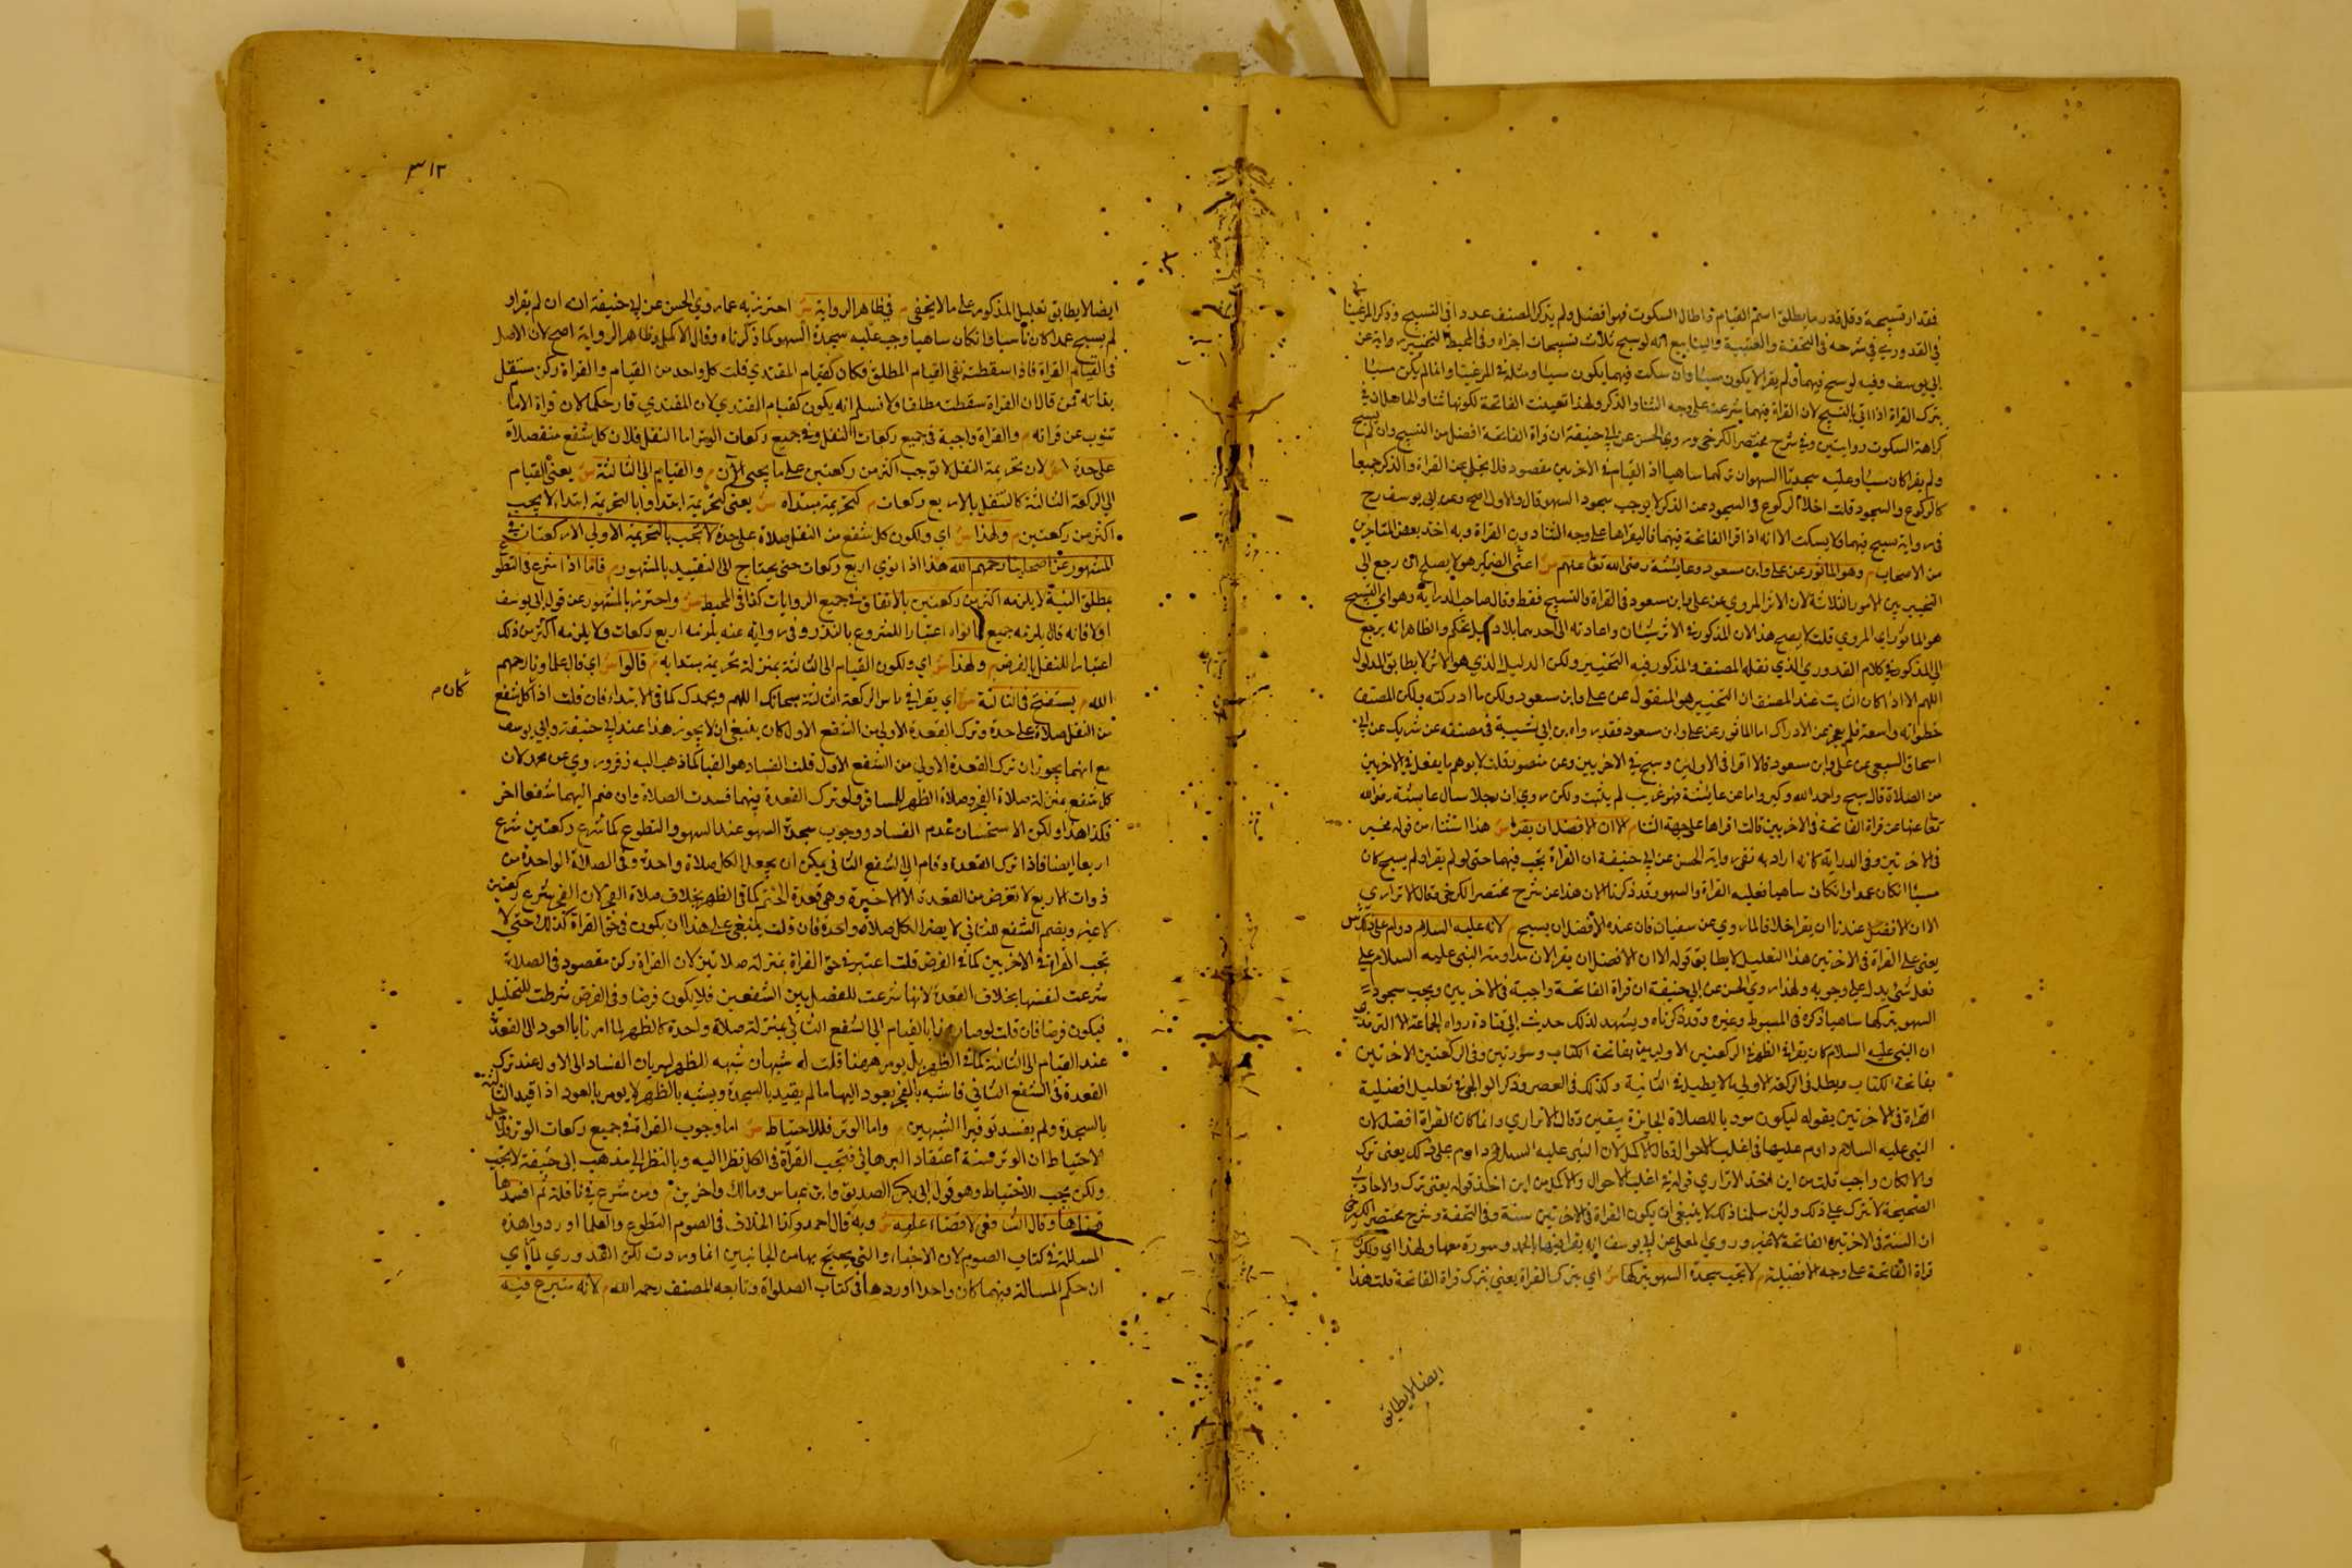 فقدار تسبيحة وقل قدر ما يطلق اسم القيام واطال السكوت فهو افضل ولم يذكر المصنف عددا في التسبيح وذكر المرغينا
في القدوري في شرحه في التحفة والينابيع انه لو سبح ثلاث تسبيحات اجزاه وفي المحيط التخيير رواية عن
ابي يوسف وفيه لو سبح فيهما ولم يقرا لا يكون مسيئا وان سكت فيهما يكون مسيئا ومثله في المرغيناني وانما لم يكن مسيئا
بترك القراة اذا اتى بالتسبيح لان القراة فيهما شرعت على وجه الثنا والذكر ولهذا تعينت الفاتحة لكونها ثنا
كراهة السكوت روايتين وفي شرح مختصر الكرخي وروى الحسن عن ابي حنيفة ان قراة الفاتحة افضل من التسبيح وان لم يسبح
ولم يقرا كان مسيئا وعليه سجدتا السهو ان تركهما ساهيا اذ القيام في الاخريين مقصود فلا يخلي عن القراة والذكر جميعا
كالركوع والسجود قلت اخلا الركوع والسجود عن الذكر لا يوجب سجود السهو قال والاول اصح وعن ابي يوسف رح
في رواية يسبح فيهما ولا يسكت الا انه اذا قرا الفاتحة فيهما فليقراها على وجه الثنا دون القراة وبه اخذ بعض المتاخرين
من الاصحاب م وهو الماثور عن علي وابن مسعود وعايشة رضى الله تعا عنهم ش اعنى الضمير هو لا يصلح ان رجع الى
التخيير بين الامور الثلاثة لان الاثر المروي عن علي وابن مسعود في القراة والتسبيح فقط وقال صاحب الدراية وهو اي التسبيح
هو الماثور اي المروي قلت لا يصح هذا لان المذكور في الاثر شيئان واعادته الى احدهما بلا دليل تحكم والظاهر انه يرجع
الى المذكور في كلام القدوري الذي نقله المصنف والمذكور فيه التخيير ولكن الدليل الذي هو الاثر لا يطابق المدلول
اللهم الا اذا كان الثابت عند المصنف ان التخيير هو المنقول عن علي وابن مسعود ولكن ما ادركته ولكن المصنف
خطواته واسعة فلم يعجز عن الادراك اما الماثور عن علي وابن مسعود فقد رواه ابن ابي شيبة في مصنفه عن شريك عن ابي
اسحاق السبيعي عن علي وابن مسعود قالا اقرا في الاوليين وسبح في الاخريين وعن منصور قلت لابراهيم ما يفعل في الاخريين
من الصلاة قال سبح واحمد الله وكبر واما عن عايشة فهو غريب لم يثبت ولكن روي ان رجلا سال عايشة رضى الله
تعا عنها عن قراة الفاتحة في الاخريين قالت اقراها على جهة الثنا م الا ان الافضل ان يقرا ش هذا استثنا من قوله مخير
في الاخريين وفي الدراية كانه اراد به نفى رواية الحسن عن ابي حنيفة ان القراة تجب فيهما حتى لو لم يقرا ولم يسبح كان
مسيئا ان كان عمدا وان كان ساهيا فعليه القراة والسهو وقد ذكرنا الان هذا عن شرح مختصر الكرخي وقال الاتراري
الا ان الافضل عندنا ان يقرا خلافا لما روي عن سفيان فان عنده الافضل ان يسبح م لانه عليه السلام دوام على ذلك ش
يعنى على القراة في الاخريين هذا التعليل لا يطابق قوله الا ان الافضل ان يقرا لان مداومة النبي عليه السلام على
فعل شى يدل على وجوبه ولهذا روي الحسن عن ابي حنيفة ان قراة الفاتحة واجبة في الاخريين ويجب سجود
السهو بتركها ساهيا ذكره في المبسوط وغيره وقد ذكرناه ويشهد لذلك حديث ابي قتادة رواه الجماعة الا الترمذي
ان النبي عليه السلام كان يقرا في الظهر في الركعتين الاوليين بفاتحة الكتاب وسورتين وفي الركعتين الاخريين
بفاتحة الكتاب ويطل في الركعة الاولى ما لا يطيل في الثانية وكذلك في العصر وذكر في تعليل افضلية
القراة في الاخريين بقوله ليكون موديا للصلاة الجايزة بيقين وقال الاتراري وانما كان القراة افضل لان
النبي عليه السلام داوم عليها في اغلب الاحوال وقال الاكمل لان النبي عليه السلام داوم على ذلك يعنى ترك
والا لكان واجب قلت من اين اخذ الاتراري قوله في اغلب الاحوال والاكمل من اين اخذ قوله يعنى ترك والاحاديث
الصحيحة لا تترك على ذلك ولئن سلمنا ذلك لا ينبغي ان يكون القراة في الاخريين سنة وفي التحفة وشرح مختصر الكرخي
ان السنة في الاخريين الفاتحة لا غير وروي المعلى عن ابي يوسف انه يقرا فيها بالحمد وسورة معها ولهذا اي ولكون
قراة الفاتحة على وجه الافضلية م لا تجب سجدة السهو بتركها ش اي بترك القراة يعني بترك قراة الفاتحة قلت هذا
ايضا لا يطابق
٣١٢
ايضا لا يطابق تعليل المذكور على ما لا يخفى م في ظاهر الرواية ش احترز به عما روي الحسن عن ابي حنيفة انه ان لم يقرا و
لم يسبح عمدا كان مسيا وان كان ساهيا وجب عليه سجدة السهو كما ذكرناه وقال الاكمل وظاهر الرواية اصح لان الاصل
في القيام القراة فاذا سقطت بقى القيام المطلق فكان كقيام المقتدي قلت كل واحد من القيام والقراة ركن مستقل
بذاته فمن قال ان القراة سقطت مطلقا ولا نسلم انه يكون كقيام المقتدي لان المقتدي قار حكما لان قراة الامام
تنوب عن قراته م والقراة واجبة في جميع ركعات النفل وفي جميع ركعات الوتر اما النفل فلان كل شفع منه صلاة
على حدة ش لان تحريمة النفل لا توجب اكثر من ركعتين على ما يجىء الان م والقيام الى الثالثة ش يعنى القيام
الى الركعة الثالثة كالتنفل بالاربع ركعات م كتحريمة مبتداه ش يعنى كتحريمة ابتدا وابالتحريمة ابتدا لا يجب
اكثر من ركعتين م ولهذا ش اي ولكون كل شفع من النفل صلاة على حدة لا تجب بالتحريمة الاولى الا ركعتان في
المشهور عن اصحابنا رحمهم الله هذا اذا نوي اربع ركعات حتى يحتاج الى التقييد بالمشهور فاما اذا شرع في التطوع
بمطلق النية لا يلزمه اكثر من ركعتين بالاتفاق في جميع الروايات كذا في المحيط ش واحترز بالمشهور عن قول ابي يوسف
اولا فانه قال يلزمه جميع ما نواه اعتبارا للشروع بالنذر وفي رواية عنه يلزمه اربع ركعات ولا يلزمه اكثر من ذلك
اعتبارا للنفل بالفرض م ولهذا ش اي ولكون القيام الى الثالثة بمنزلة تحريمة مبتداه م قالوا ش اي قال علماونا رحمهم
كان م
الله م يستفتح في الثالثة ش اي يقرا في راس الركعة الثالثة سبحانك اللهم وبحمدك كما في الابتداء فان قلت اذا كل شفع
من النفل صلاة على حدة وترك القعدة الاولى من الشفع الاول كان ينبغي ان لا يجوز هذا عند ابي حنيفة وابي يوسف
مع انهما يجوزان ترك القعدة الاولى من الشفع الاول قلت الفساد هو القياس كما ذهب اليه زفر وروي عن محمد لان
كل شفع بمنزلة صلاة الفجر وصلاة الظهر للمسافر ولو ترك القعدة فيهما فسدت الصلاة وان ضم اليهما شفعا اخر
فكذا هذا ولكن الاستحسان عدم الفساد ووجوب سجدة السهو عند السهو والتطوع كما شرع ركعتين شرع
اربعا ايضا فاذا ترك القعدة وقام الى الشفع الثاني يمكن ان يجعل الكل صلاة واحدة وفي الصلاة الواحدة من
ذوات الاربع لا تفرض من القعدة الا الاخيرة وهي قعدة الختم كما في الظهر بخلاف صلاة الفجر لان الفجر شرع ركعتين
لا غير وبضم الشفع الثاني لا يصير الكل صلاة واحدة فان قلت ينبغي على هذا ان يكون في حق القراة كذلك حتى لا
تجب القراة في الاخريين كما في الفرض قلت اعتبر في حق القراة بمنزلة صلاتين لان القراة ركن مقصود في الصلاة
شرعت لنفسها بخلاف القعدة لانها شرعت للفصل بين الشفعين فلا يكون فرضا وفي الفرض شرطت للتحليل
فيكون فرضا فان قلت لو صار بالقيام الى الشفع الثاني بمنزلة صلاة واحدة كالظهر لما امرنا بالعود الى القعدة
عند القيام الى الثالثة كما في الظهر بل يومر ههنا قلت له شبهان شبه الظهر لسريان الفساد الى الاول عند ترك
القعدة في الشفع الثاني فاشبه بالفجر يعود اليها ما لم يقيد بالسجدة ويشبه بالظهر لا يومر بالعود اذا قيد الثالثة
بالسجدة ولم يفسد توفيرا الشبهين م واما الوتر فللاحتياط ش اما وجوب القراة في جميع ركعات الوتر فلاجل
الاحتياط ان الوتر سنة اعتقاد البرهاني فتجب القراة في الكل نظرا اليه وبالنظر الى مذهب ابي حنيفة لا يجب
ولكن يجب للاحتياط وهو قول ابي بكر الصديق وابن عباس ومالك واخرين م ومن شرع في نافلة ثم افسدها
قضاها وقال الشافعي لا قضاء عليه ش وبه قال احمد وكذا الخلاف في الصوم التطوع والعلما اوردوا هذه
المسالة في كتاب الصوم لان الاخبار والتي يحتج بها من الجانبين انما وردت لكن القدوري لما راي
ان حكم المسالة فيهما كان واحدا اوردها في كتاب الصلواة وتابعه المصنف رحمه الله م لانه متبرع فيه